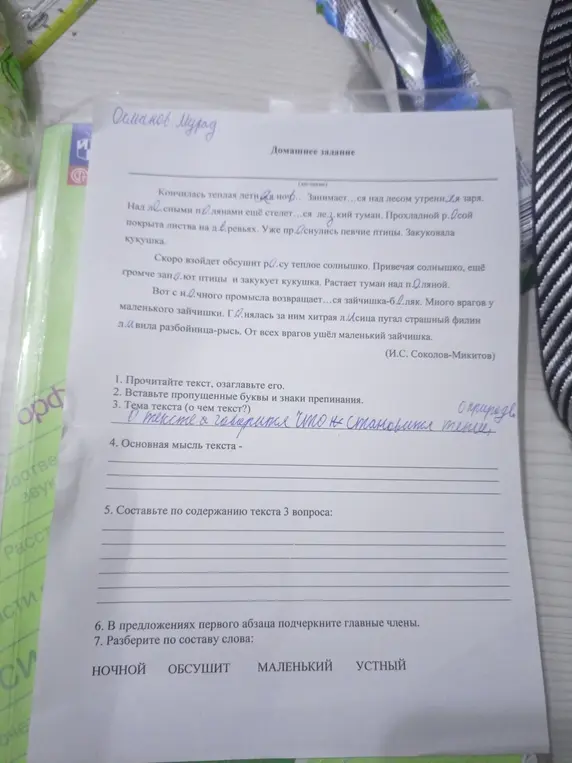 Османов Мурад
Домашнее задание
Кончилась теплая летняя ноч.. Занимает...ся над лесом утренняя заря.
Над лесными полянами ещё стелет...ся легкий туман. Прохладной росой
покрыта листва на деревьях. Уже проснулись певчие птицы. Закуковала
кукушка.
Скоро взойдет обсушит росу теплое солнышко. Привечая солнышко, ещё
громче запоют птицы и закукует кукушка. Растает туман над поляной.
Вот с ночного промысла возвращает...ся зайчишка-беляк. Много врагов у
маленького зайчишки. Гонялась за ним хитрая лисица пугал страшный филин
ловила разбойница-рысь. От всех врагов ушёл маленький зайчишка.
(И.С. Соколов-Микитов)
1. Прочитайте текст, озаглавьте его.
2. Вставьте пропущенные буквы и знаки препинания.
3. Тема текста (о чем текст?)
о природе
В тексте говорится что становится
4. Основная мысль текста -
5. Составьте по содержанию текста 3 вопроса:
6. В предложениях первого абзаца подчеркните главные члены.
7. Разберите по составу слова:
НОЧНОЙ ОБСУШИТ МАЛЕНЬКИЙ УСТНЫЙ